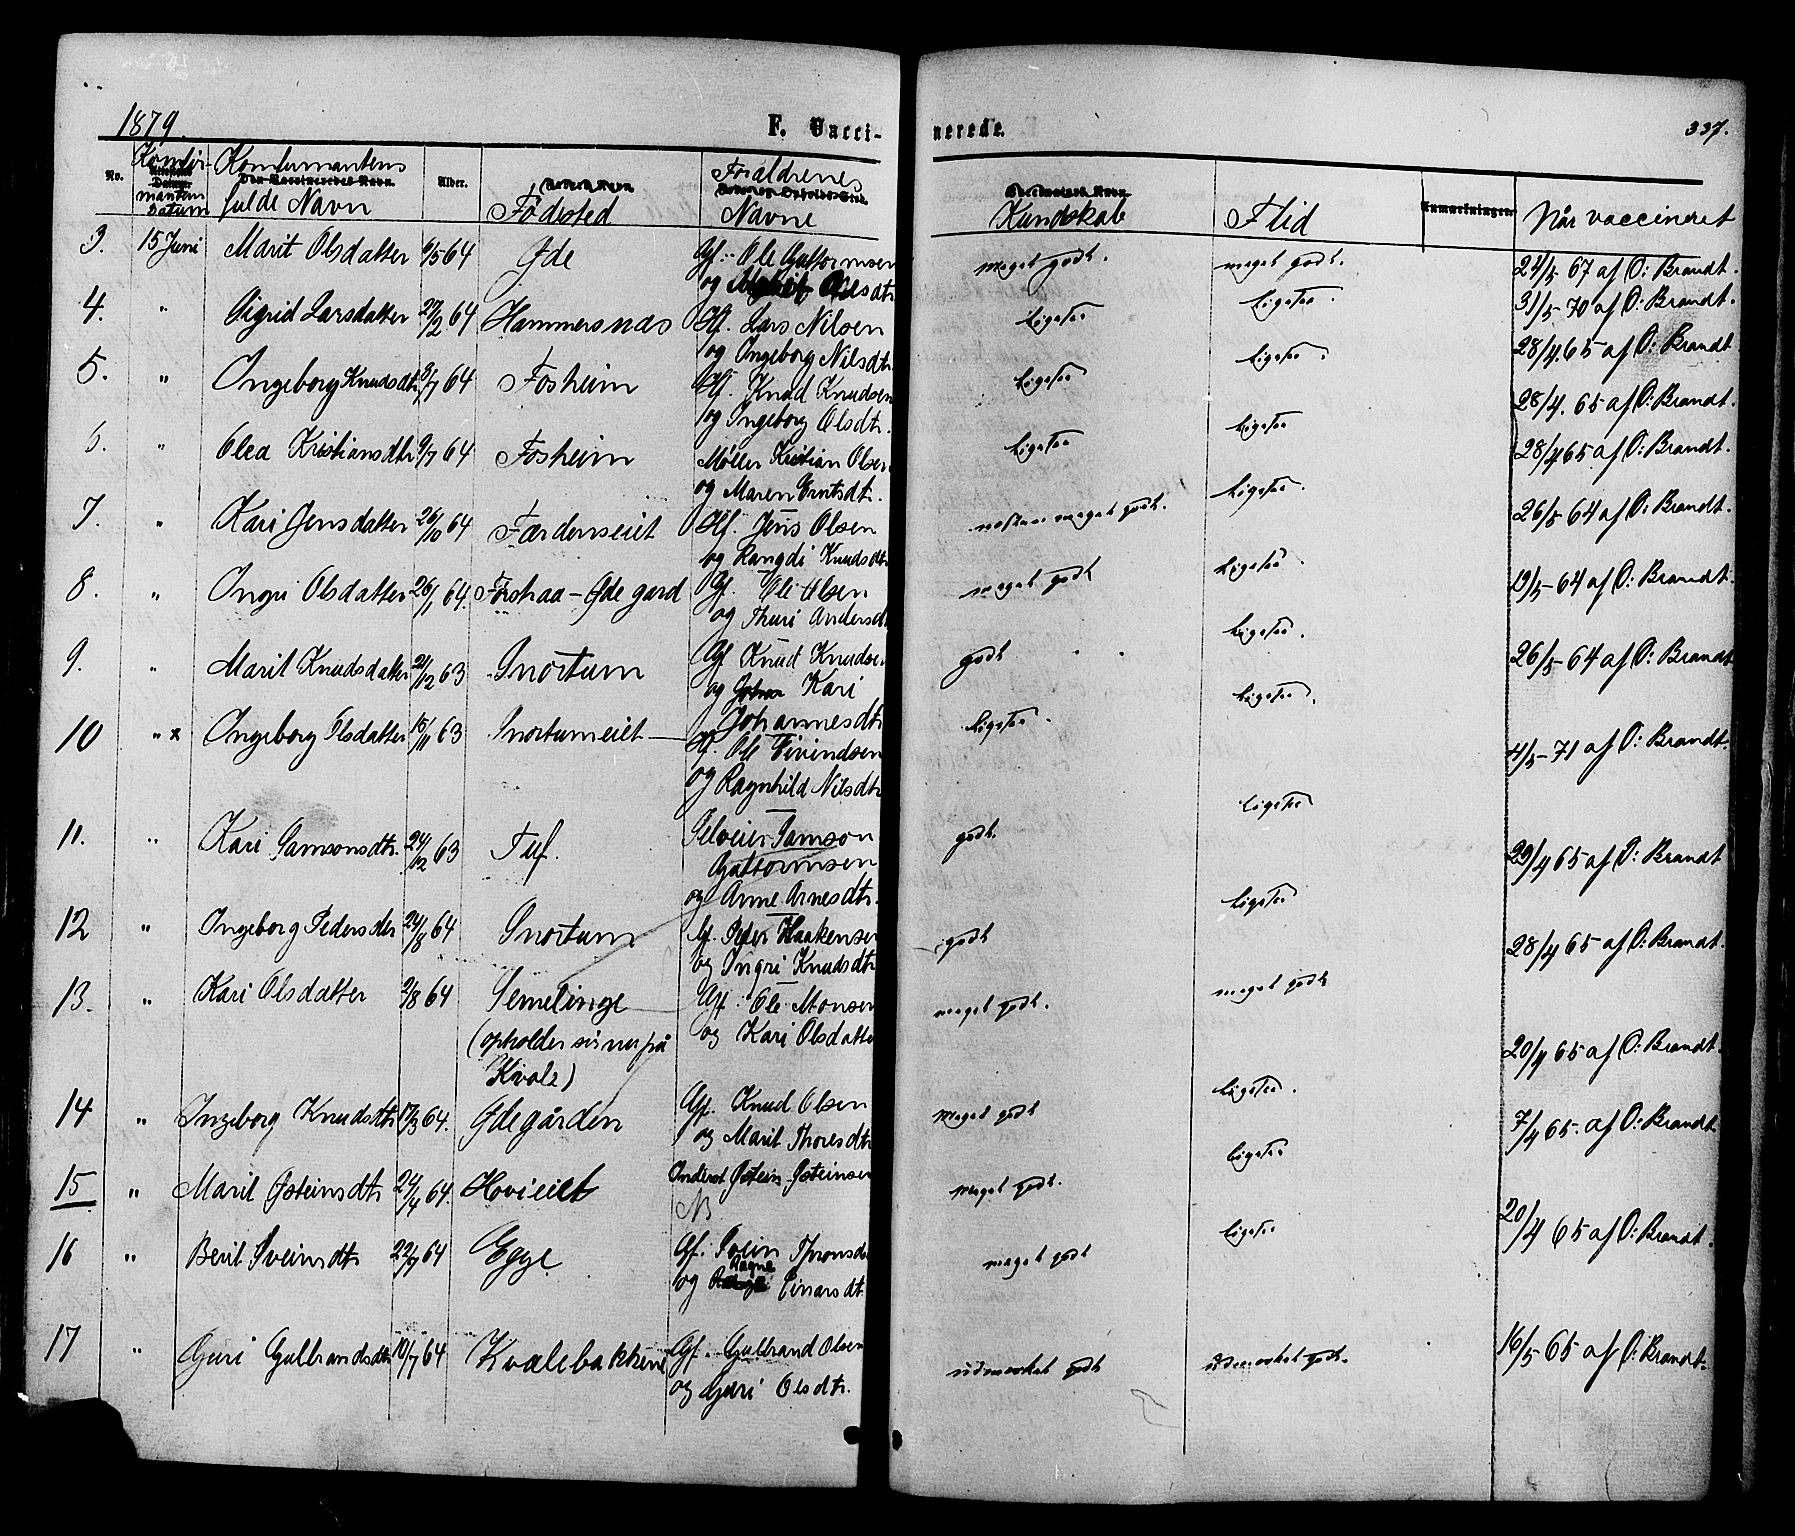 1879. F. Vacci- nerede. 337.
No. Konfir- manten Datum Konfirmantens fulde Navn Alder. Födested Forældrenes Navne Kundskab Flid Anmærkninger Når vaccineret
3. 15 Juni Marit Olsdatter 6/5 64 Øde Gf. Ole Guttormsen meget godt. meget godt. 24/5 67 af O: Brandt.
og Olsdtr
4. " Sigrid Larsdatter 27/2 64 Hammersnæs Hf. Lars Nilsen Ligesaa Ligesaa. 31/5-70 af O: Brandt.
og Ingeborg Nilsdtr. 28/4.65 af O: Brandt
5. " Ingeborg Knudsdtr 64 Fosheim Gf. Knud Knudsen Ligesaa Ligesaa.
og Ingeborg Olsdtr. 28/4. 65 af O: Brandt.
6. " Olea Kristiansdtr 9/7 64 Fosheim Møller Kristian Olsen Ligesaa Ligesaa 28/4 65 af O: Brandt.
og Maren
7. " Kari Jensdatter 26/10 64 Færdenseiet Hf. Jens Olsen næsten meget godt. Ligesaa. 26/5 64 af O: Brandt.
og Rangdi Knudsdtr
8. " Ingri Olsdatter 26/1 64. Ødegard Gf. Ole Olsen meget godt Ligesaa. 19/5-64 af O: Brandt.
og Thuri Andersdt
9. " Marit Knudsdatter 21/12 63 Snortum Gf Knud Knudse godt Ligesaa. 26/5-64 af O: Brandt
og Kari
Johannesdtr
10 " x Ingeborg Olsdatter 15/11 63 Snortumeiet Hf. Ole Eivindsen Ligesaa. Ligesaa. 4/5-71 af O: Brandt.
og Ragnhild Nilsdtr
11. " Kari Samsonsdtr. 24/12 63 Tuf. Selveier Samson godt. Ligesaa 29/4 65 af O: Brandt
Guttormsen
og Anne Arnesdtr.
12 " Ingeborg Pedersdtr 24/8 64 Snortum Gf. Peder Haakensen godt Ligesaa 28/4 65 af O: Brandt.
og Ingri Knudsdtr
13. " Kari Olsdatter 2/8 64 Semelinge Gf. Ole Monsen meget godt. meget godt
(opholder sig nu på og Kari Olsdatte 20/4 65 af O: Brandt.
Kvale)
14 " Ingeborg Knudsdtr 17/3 64. Ødegården Gf. Knud Olsen meget godt Ligesaa. 7/4 65. af O: Brandt
og Marit Thoresdtr
15 " Marit Østeinsdtr 24/4 64 Hovieiet Inderst Østein Østeinsen meget godt. Ligesaa 20/4 65 af O: Brandt.
NB
16 " Berit Sveinsdtr 22/7 64 Egge Gf. Svein Thronds meget godt Ligesaa
og Ragne Einarsdtr
17 " Guri Gulbrandsdtr 10/7 64 Kvalebakkene Gf. Gulbrand Olsen udmærket godt udmærket godt. 16/5 65 af O: Brandt.
og Guri Olsdtr.